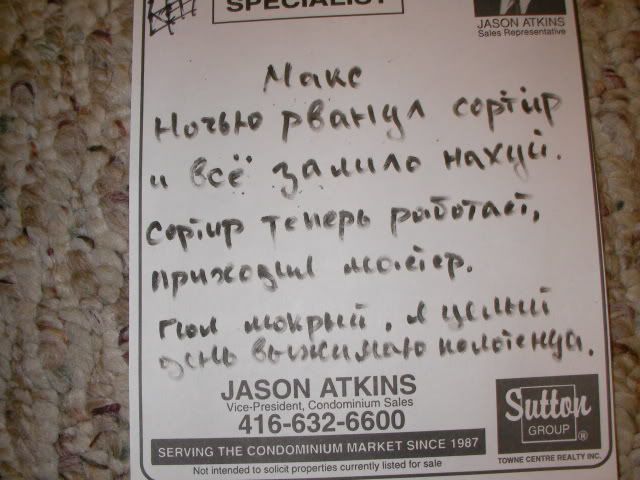 SPECIALIST
JASON ATKINS
Sales Representative
Макс
Ночью рванул сортир
и всё залило нахуй.
Сортир теперь работает,
приходил мастер.
Пол мокрый, я целый
день выжимаю полотенца.
JASON ATKINS
Vice-President, Condominium Sales
416-632-6600
SERVING THE CONDOMINIUM MARKET SINCE 1987
Not intended to solicit properties currently listed for sale
Sutton
GROUP ®
TOWNE CENTRE REALTY INC.